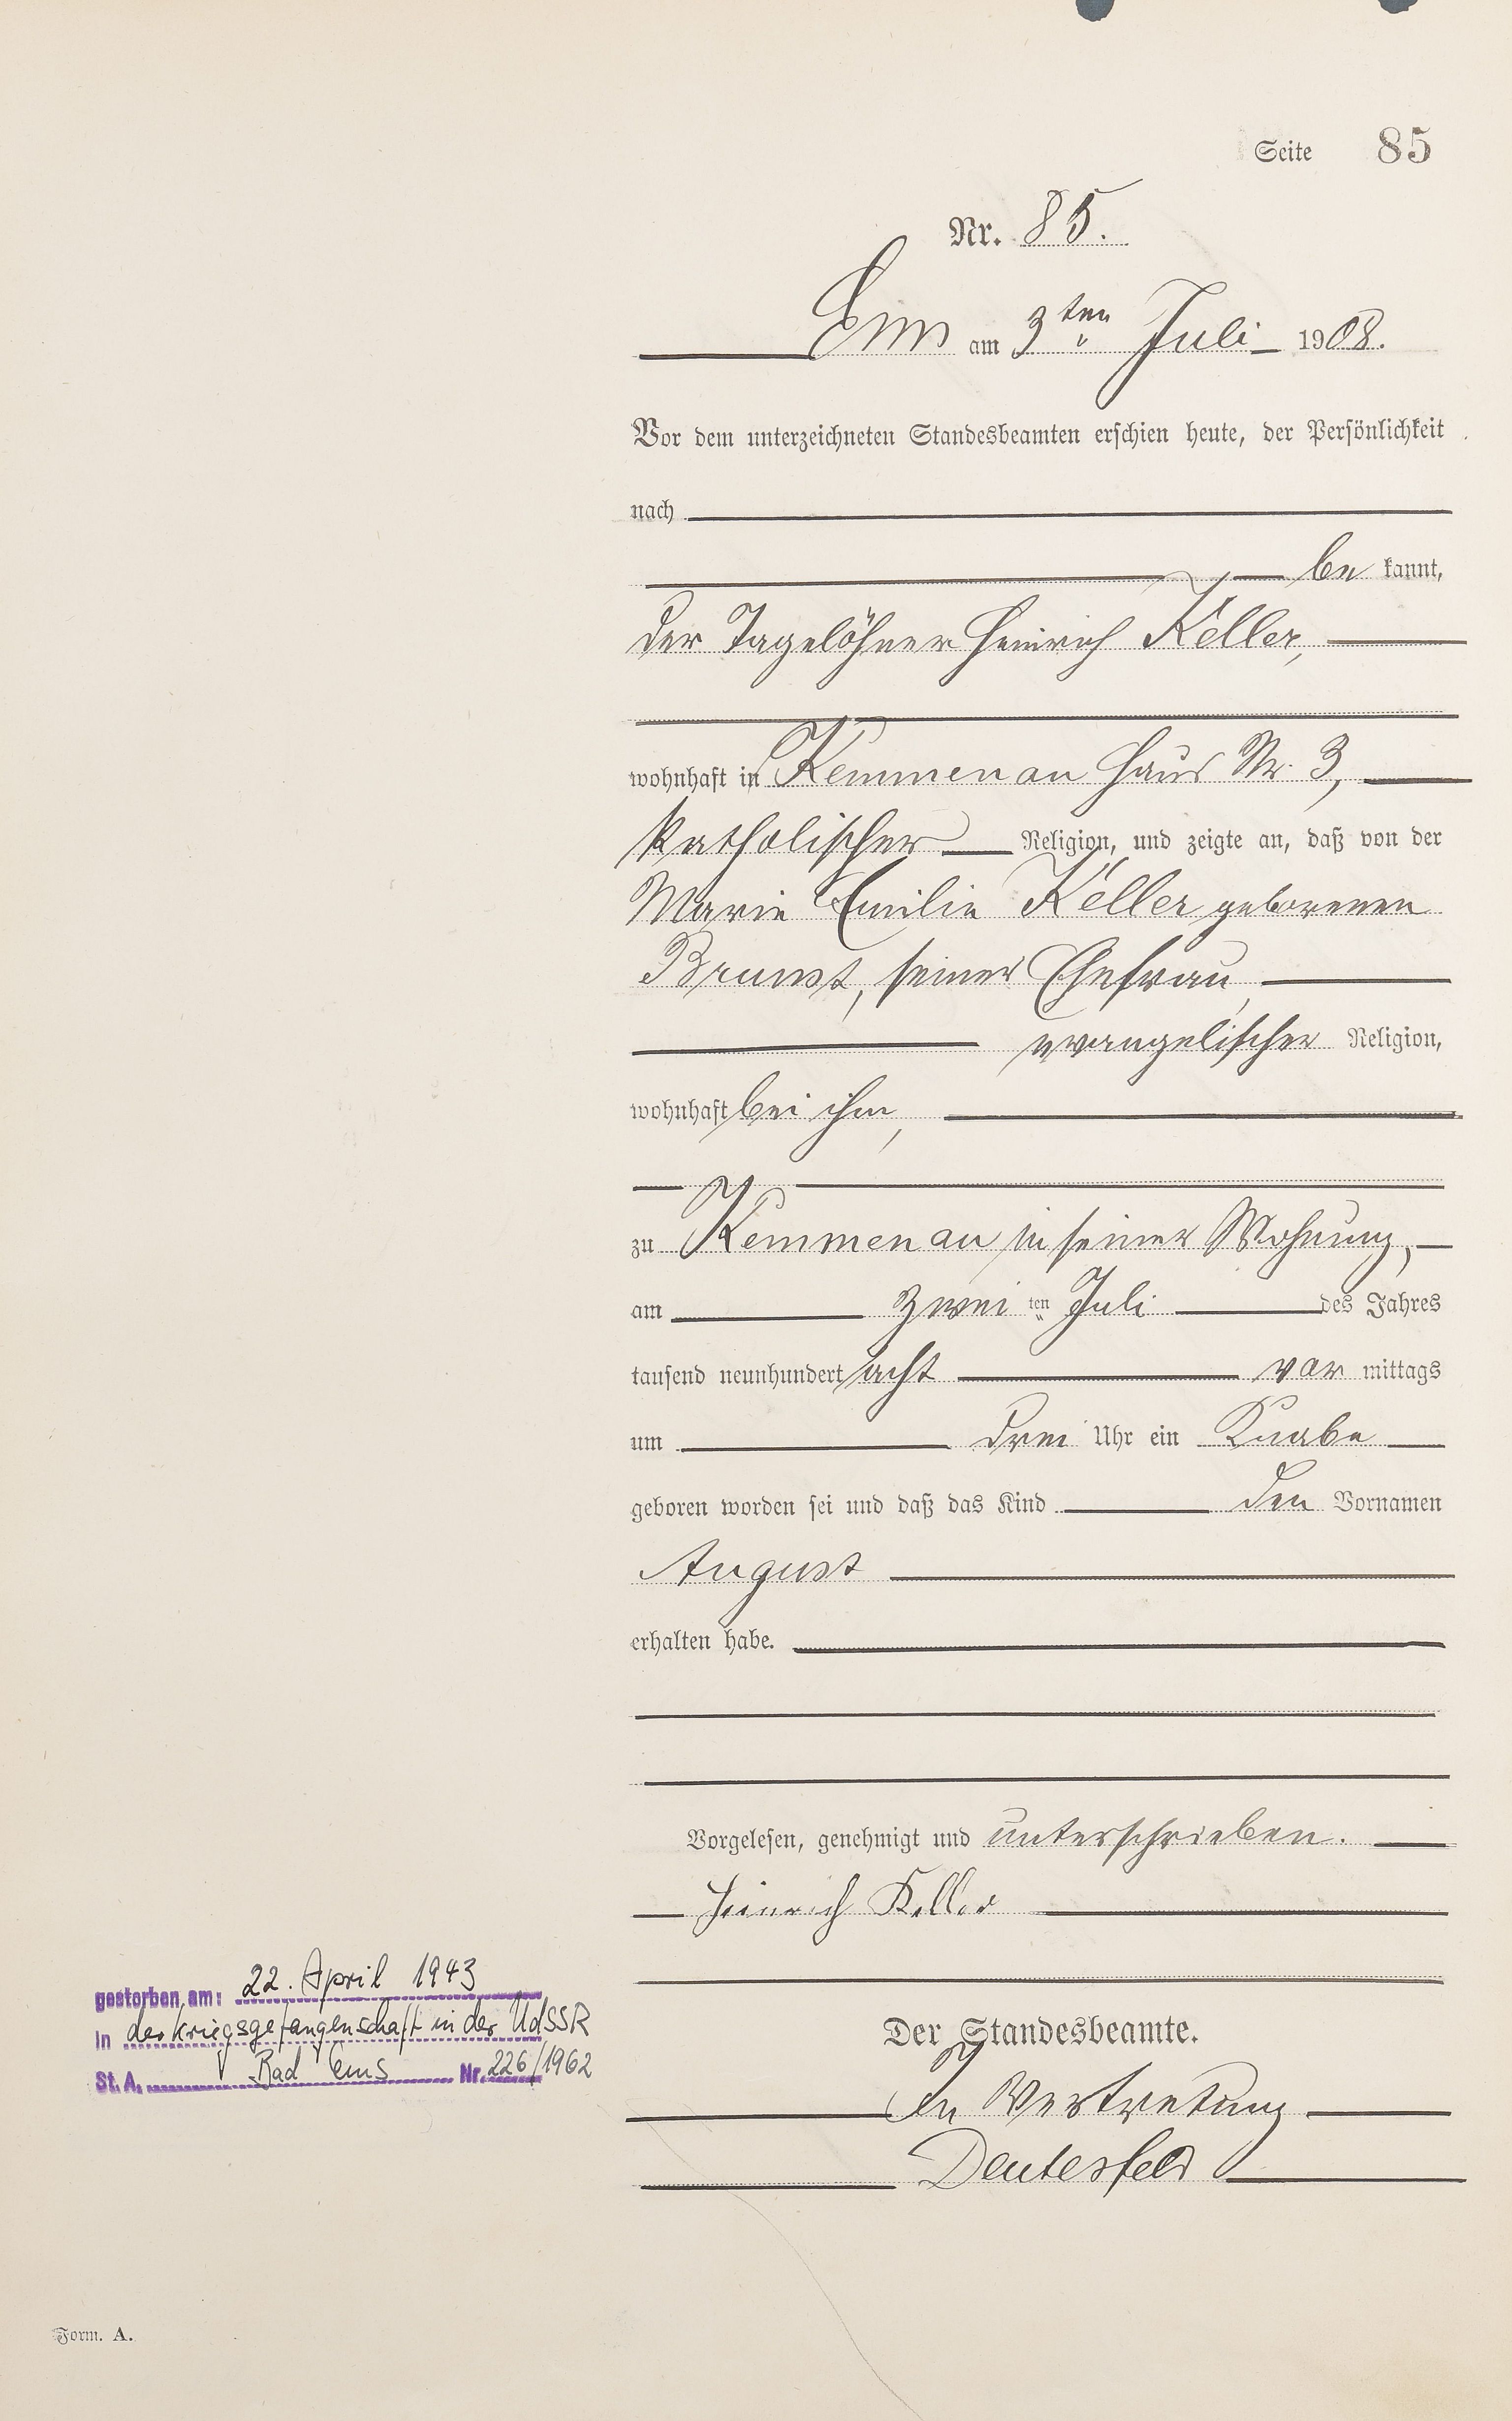 Seite 85
Nr. 85.
Ems am 3ten Juli 1908.
Vor dem unterzeichneten Standesbeamten erschien heute, der Persönlichkeit
nach
be kannt,
der Tagelöhner Heinrich Keller,
wohnhaft in Kemmenau Haus Nr. 3,
katholischer Religion, und zeigte an, daß von der
Marie Emilie Keller geborenen
Brunst, seiner Ehefrau,
evangelischer Religion,
wohnhaft bei ihm,
zu Kemmenau in seiner Wohnung,
am zwei ten Juli des Jahres
tausend neunhundert acht vor mittags
um drei Uhr ein Knabe
geboren worden sei und daß das Kind den Vornamen
August
erhalten habe.
Vorgelesen, genehmigt und unterschrieben.
Heinrich Keller
gestorben am: 22. April 1943
in der Kriegsgefangenschaft in der UdSSR
St. A. Bad Ems Nr. 226/1962
Der Standesbeamte.
In Vertretung
Deutesfeld
Form. A.